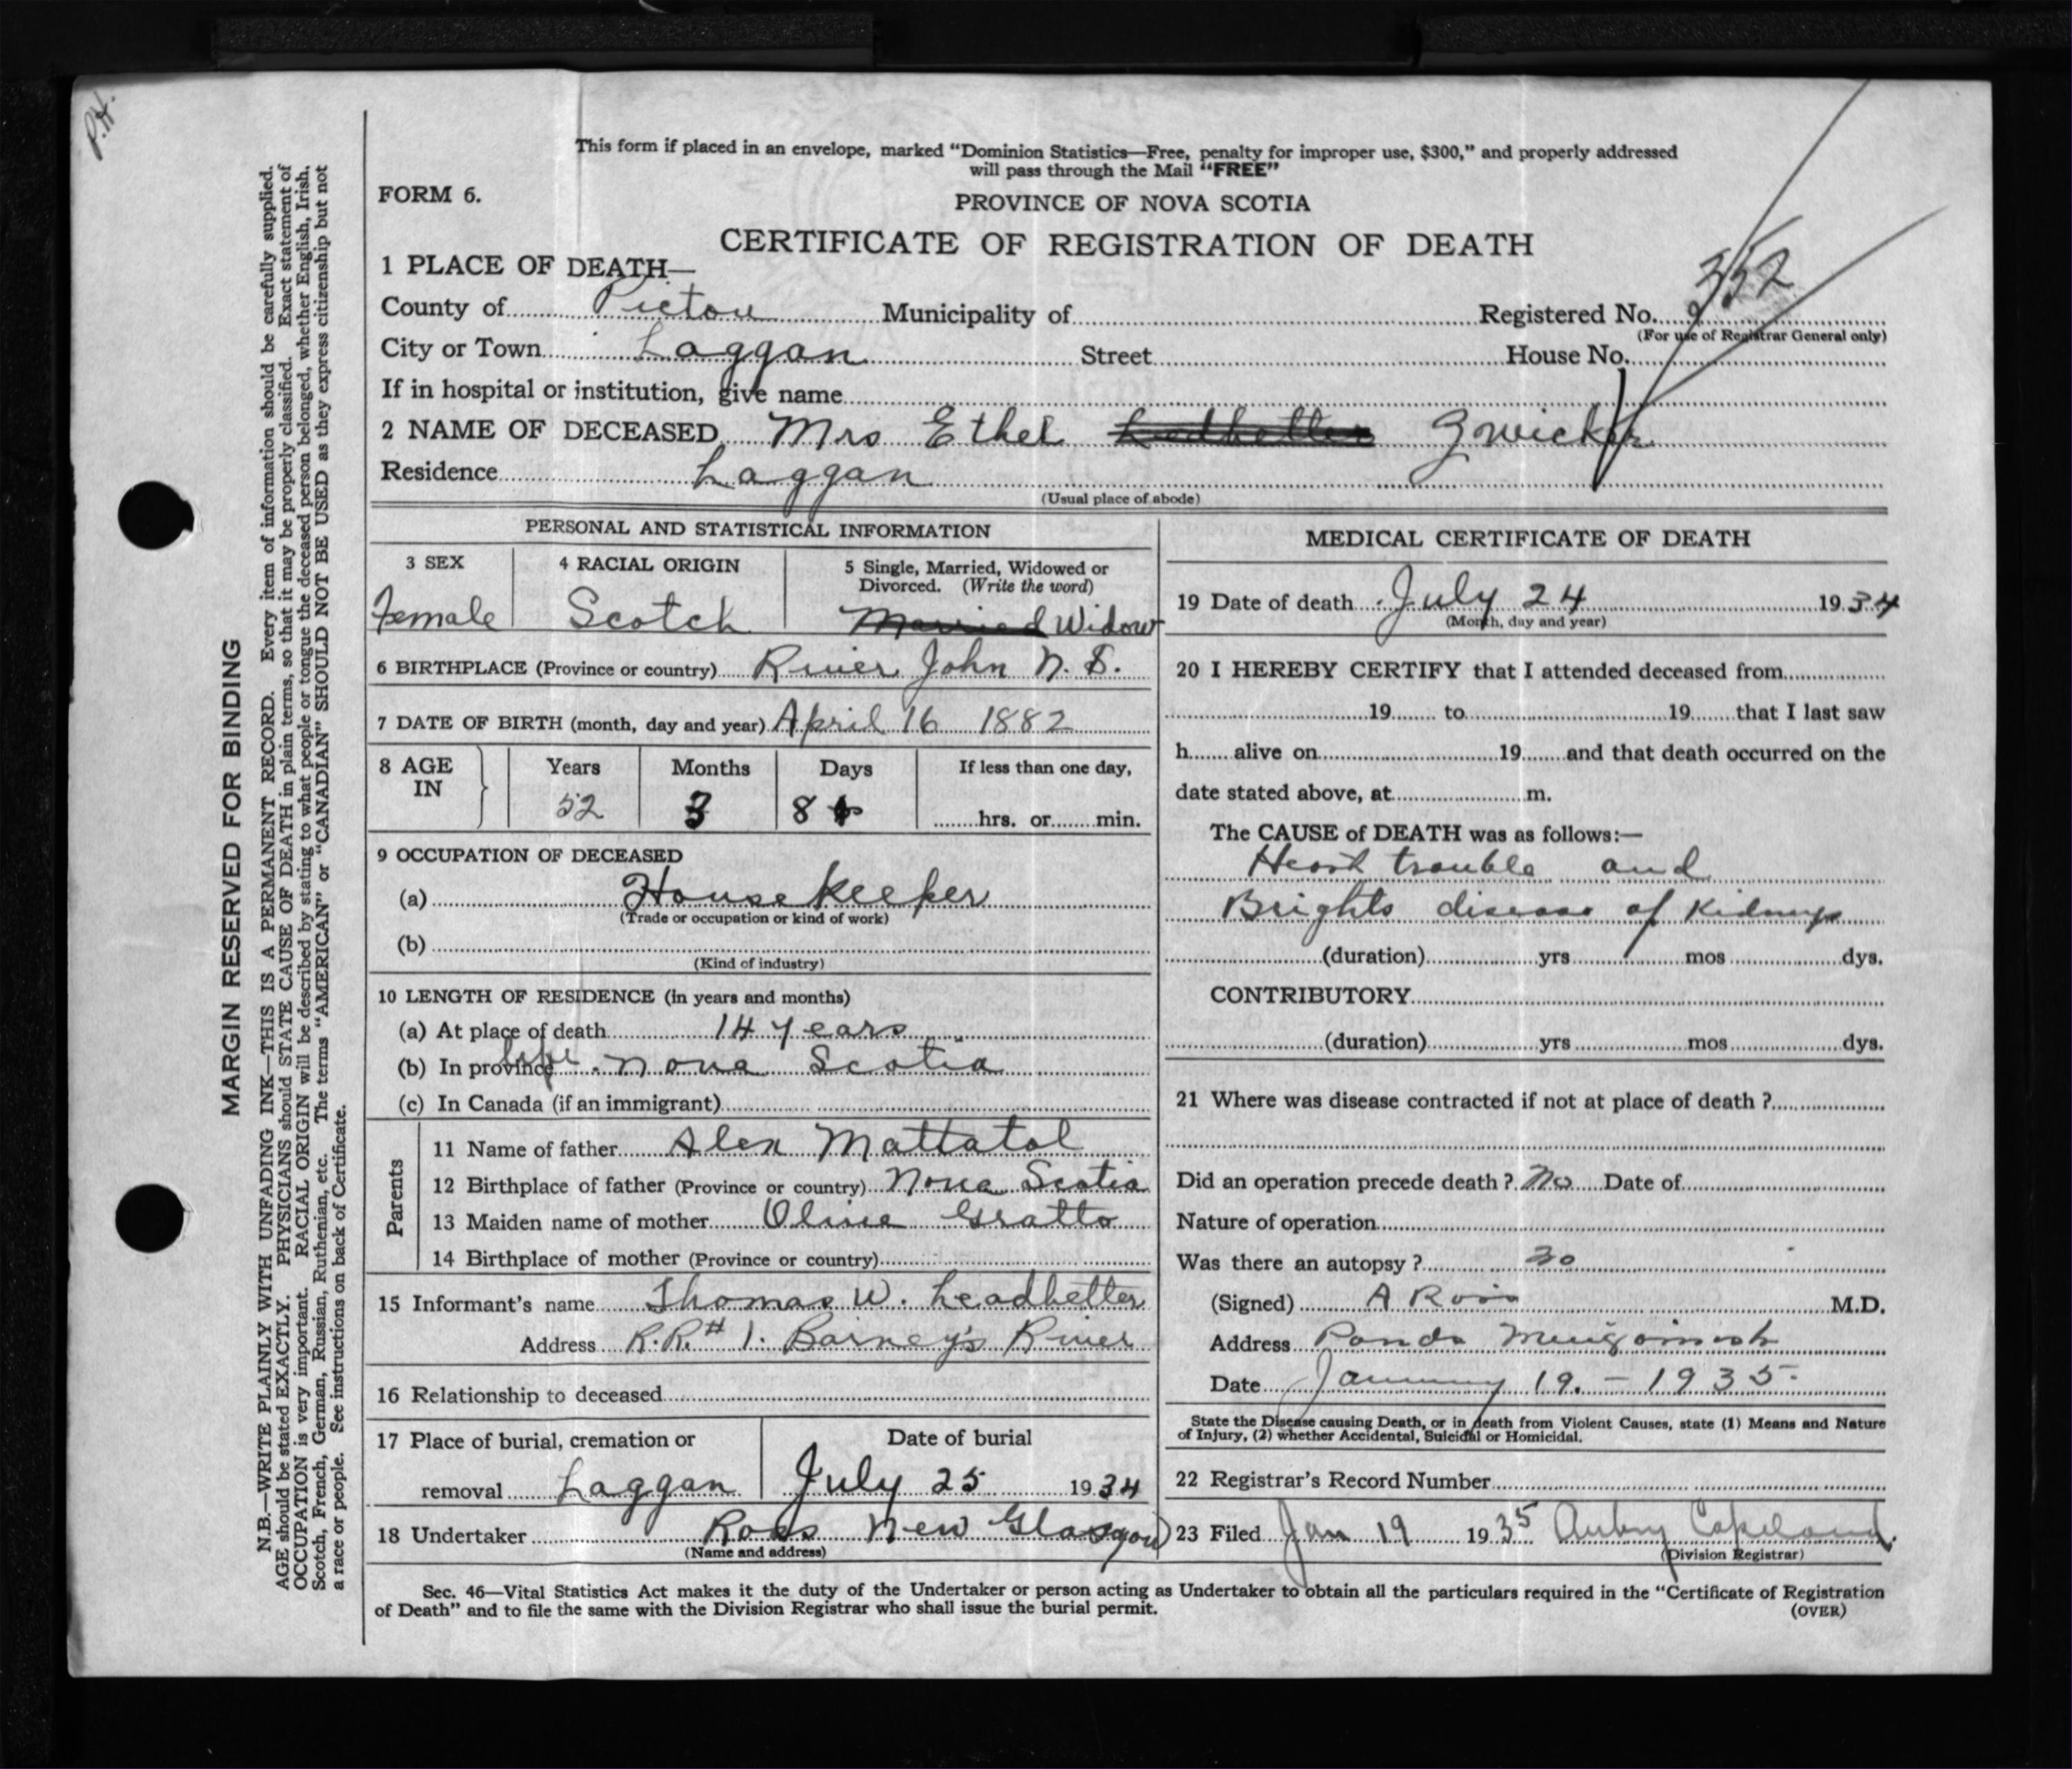 P.H.
This form if placed in an envelope, marked “Dominion Statistics—Free, penalty for improper use, $300,” and properly addressed
will pass through the Mail “FREE”
FORM 6.
PROVINCE OF NOVA SCOTIA
CERTIFICATE OF REGISTRATION OF DEATH
1 PLACE OF DEATH—
352
County of Pictou Municipality of Registered No. 9
(For use of Registrar General only)
City or Town Laggan Street House No.
If in hospital or institution, give name
2 NAME OF DECEASED Mrs Ethel Ledbetter Zwicker
Residence Laggan
(Usual place of abode)
PERSONAL AND STATISTICAL INFORMATION
3 SEX 4 RACIAL ORIGIN 5 Single, Married, Widowed or
Divorced. (Write the word)
Female Scotch Married Widow
6 BIRTHPLACE (Province or country) River John N.S.
7 DATE OF BIRTH (month, day and year) April 16 1882
8 AGE IN Years Months Days If less than one day,
52 3 8 hrs. or min.
9 OCCUPATION OF DECEASED
(a) House Keeper
(Trade or occupation or kind of work)
(b)
(Kind of industry)
10 LENGTH OF RESIDENCE (in years and months)
(a) At place of death 14 years
(b) In province life Nova Scotia
(c) In Canada (if an immigrant)
Parents
11 Name of father Alex Mattatal
12 Birthplace of father (Province or country) Nova Scotia
13 Maiden name of mother Olive Gratto
14 Birthplace of mother (Province or country)
15 Informant's name Thomas W. Leadbetter
Address R.R.# 1. Barney's River
16 Relationship to deceased
17 Place of burial, cremation or Date of burial
removal Laggan July 25 1934
18 Undertaker Ross New Glasgow
(Name and address)
MEDICAL CERTIFICATE OF DEATH
19 Date of death July 24 1934
(Month, day and year)
20 I HEREBY CERTIFY that I attended deceased from
19 to 19 that I last saw
h alive on 19 and that death occurred on the
date stated above, at m.
The CAUSE of DEATH was as follows:—
Heart trouble and
Brights disease of Kidneys
(duration) yrs mos dys.
CONTRIBUTORY
(duration) yrs mos dys.
21 Where was disease contracted if not at place of death ?
Did an operation precede death ? No Date of
Nature of operation
Was there an autopsy ? no
(Signed) A Ross M.D.
Address Ponds Merigomish
Date January 19. – 1935
State the Disease causing Death, or in death from Violent Causes, state (1) Means and Nature
of Injury, (2) whether Accidental, Suicidal or Homicidal.
22 Registrar's Record Number
23 Filed Jan 19 1935 Aubry Copeland
(Division Registrar)
Sec. 46—Vital Statistics Act makes it the duty of the Undertaker or person acting as Undertaker to obtain all the particulars required in the “Certificate of Registration
of Death” and to file the same with the Division Registrar who shall issue the burial permit.
(OVER)
MARGIN RESERVED FOR BINDING
N.B.—WRITE PLAINLY WITH UNFADING INK—THIS IS A PERMANENT RECORD. Every item of information should be carefully supplied.
AGE should be stated EXACTLY. PHYSICIANS should STATE CAUSE OF DEATH in plain terms, so that it may be properly classified. Exact statement of
OCCUPATION is very important. RACIAL ORIGIN will be described by stating to what people or tongue the deceased person belonged, whether English, Irish,
Scotch, French, German, Russian, Ruthenian, etc. The terms “AMERICAN” or “CANADIAN” SHOULD NOT BE USED as they express citizenship but not
a race or people. See instructions on back of Certificate.